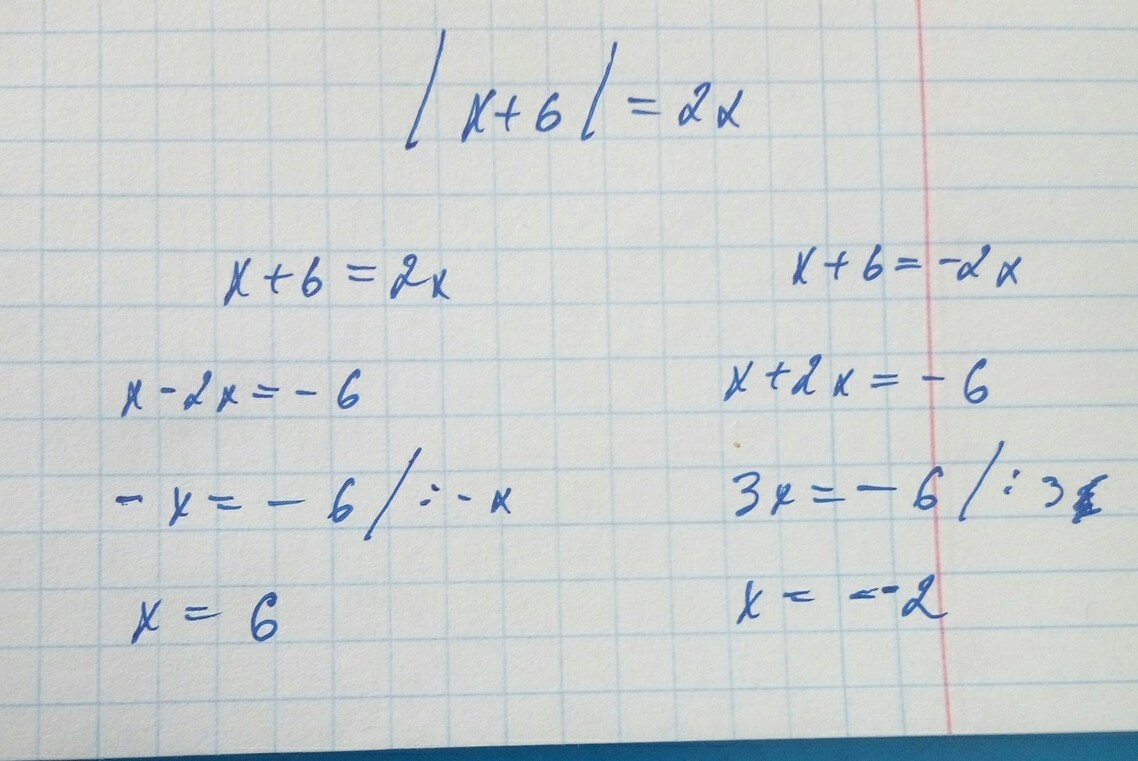 |x+6|=2x
x+6=2x
x+6=-2x
x-2x=-6
x+2x=-6
-x=-6/:-x
3x=-6/:3
x=6
x=-2